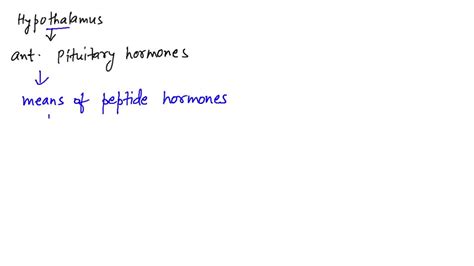 Hypothalamus
ant. Pituitary hormones
means of peptide hormones